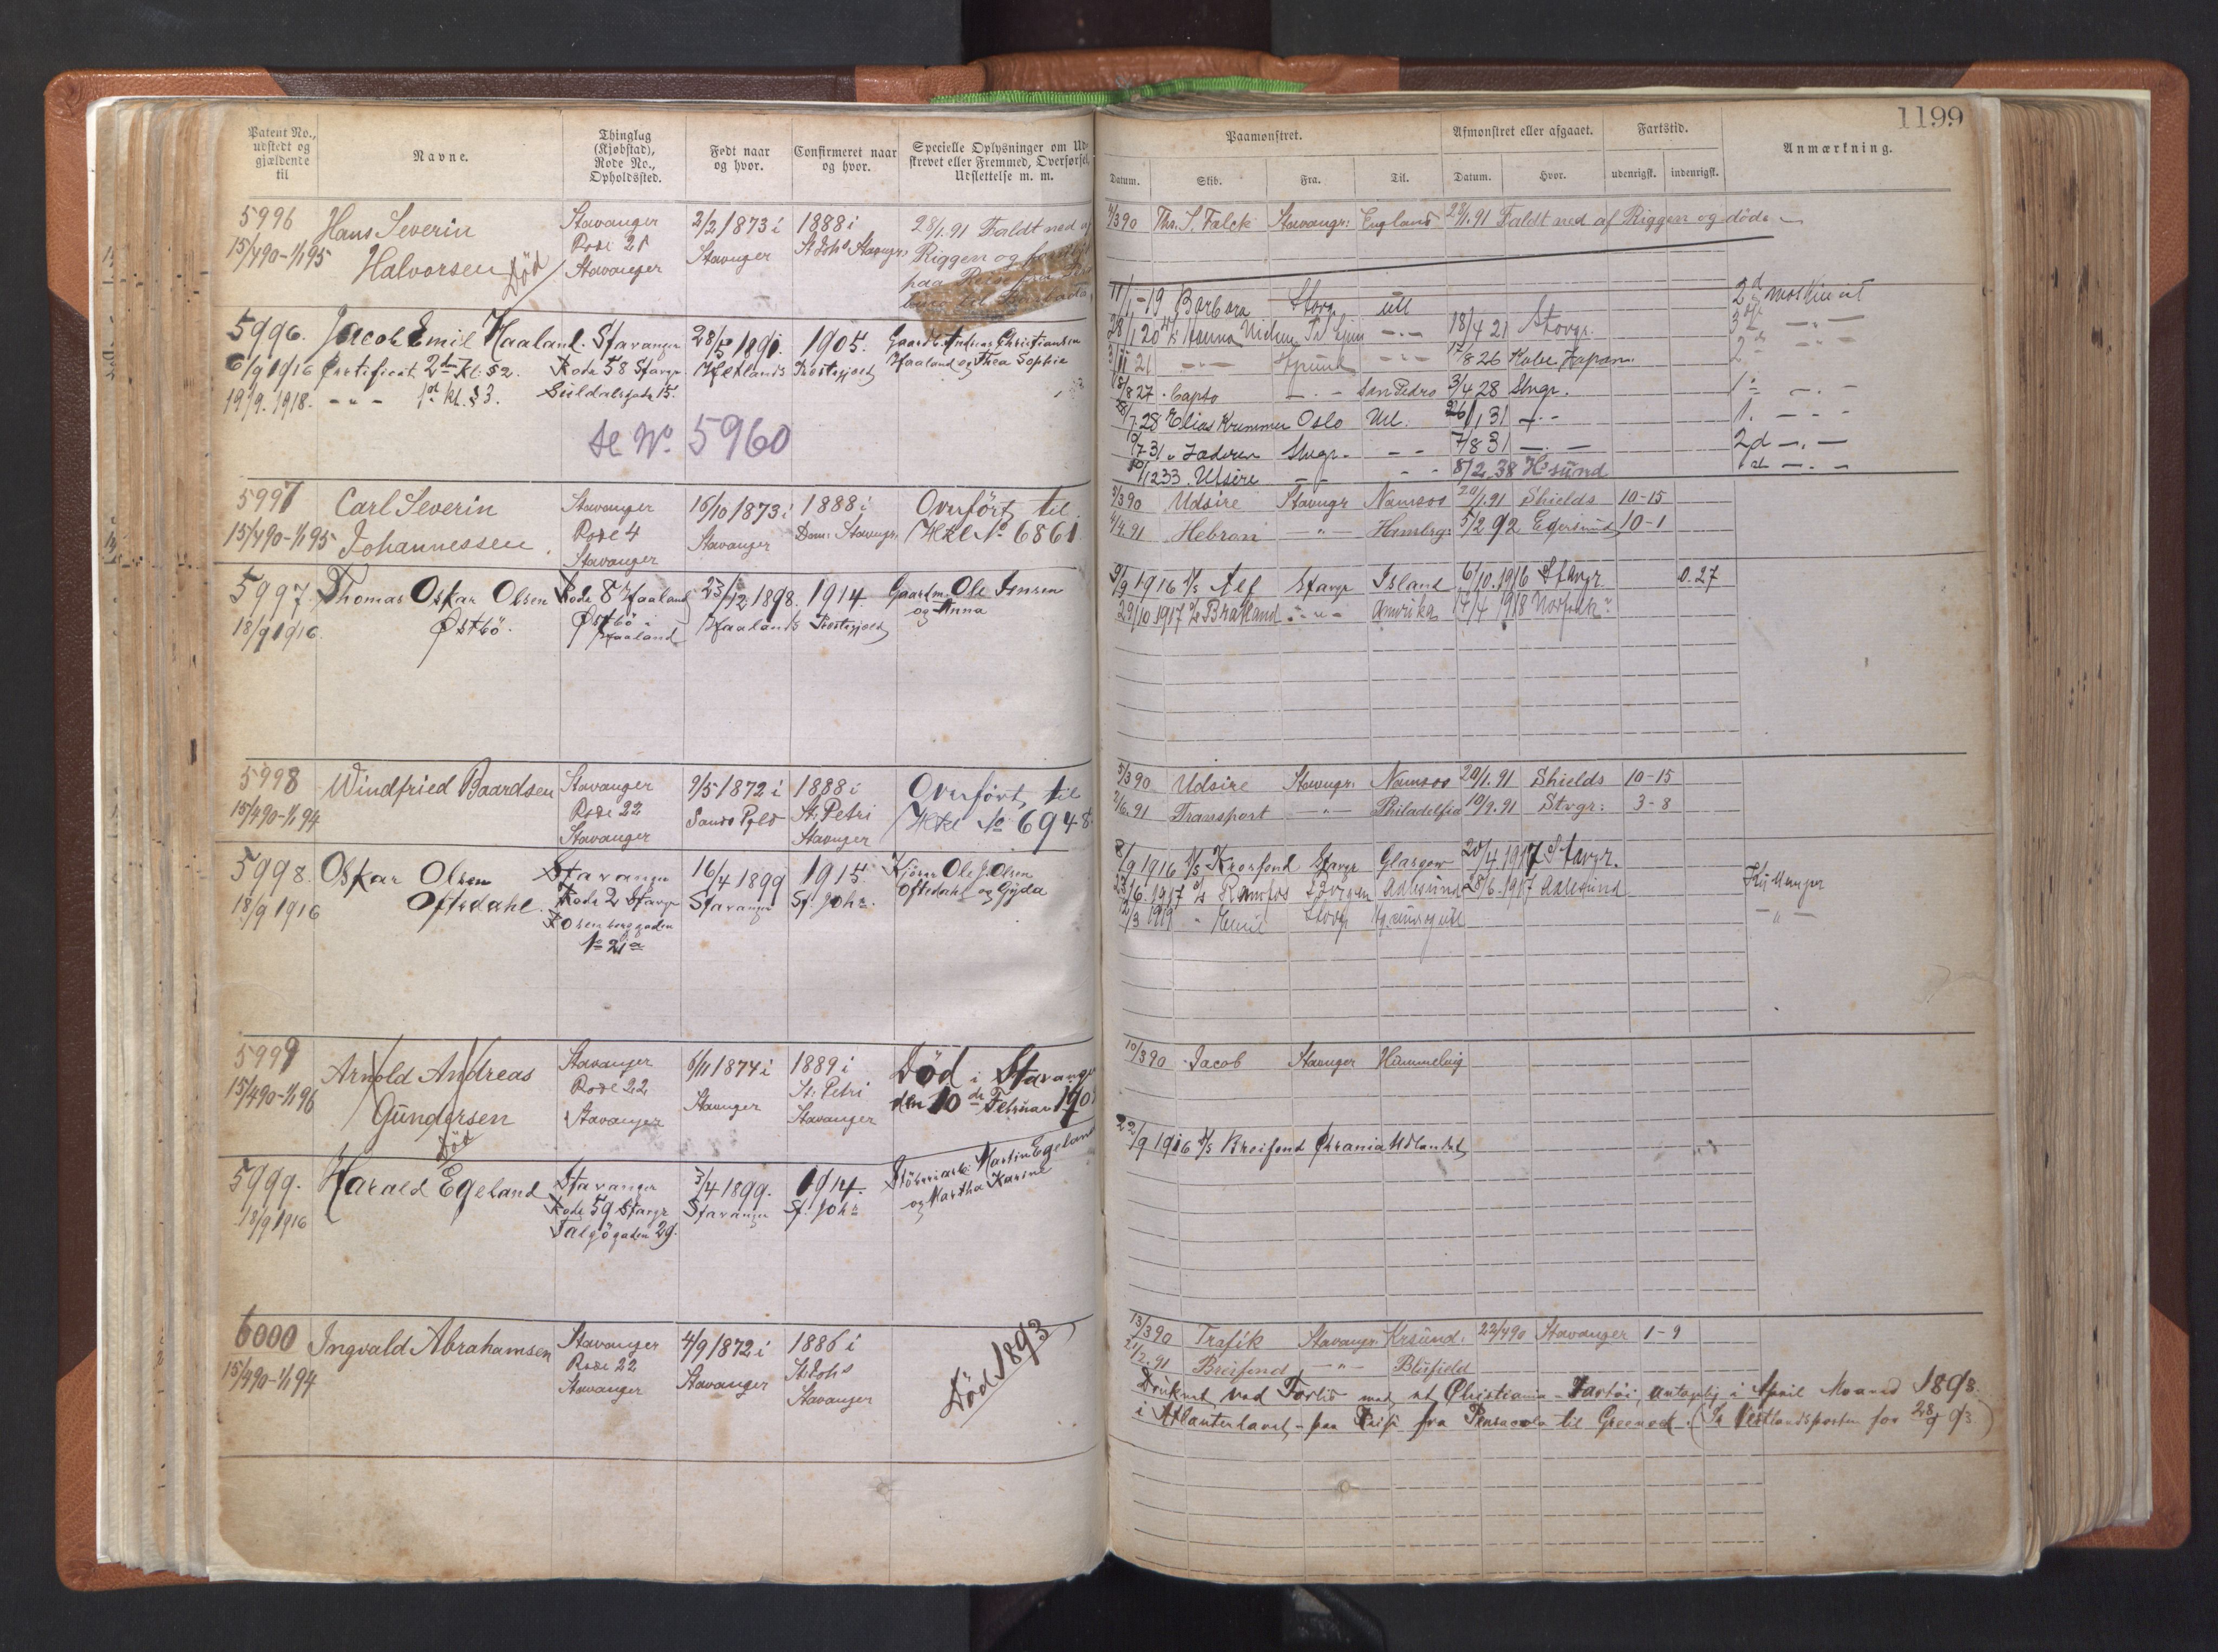 1199
Patent No., udstedt og gjældende til
Navne.
Thinglag (Kjøbstad), Rode No., Opholdssted.
Født naar og hvor.
Confirmeret naar og hvor.
Specielle Oplysninger om Ud-
strevet eller Fremmed, Overførsel,
Udslettelse m. m.
Paamønstret.
Afmønstret eller afgaaet.
Fartstid.
Anmærkning.
Datum.
Skib.
Fra.
Til.
Datum.
Hvor.
udenrigsk.
indenrigsk.
5996 Hans Severin Stavanger 2/2 1873 i 1888 i 28/1.91 Faldt ned
15/4 90-1/1 95 Halvorsen Død Rode 21 Stavanger St Johs Stavgr. Riggen og
Stavanger
paa Reise fra
til
4/3 90 Ths. S. Falck Stavangr: England 28/1.91 Faldt ned af Riggen og døde
5996. Jacob Emil Haaland. Stavanger 28/5 1890. 1905. Gaardbr. Andreas Christiansen
6/9 1916 Certificat 2den Kl. § 2. Rode 58 Stavgr Hetlands Prestegjeld Haaland og Thea Sophie
19/9. 1918. - " - 1st kl. § 3. Suldalsgade 15.
se No. 5960
11/1-19 Barbara Stavgr. utl 2d maskinist
28/1 20 Hanna Nielsen 18/4 21 Stavgr.
3/11 21 - " - 17/8 26 Kobe, Japan. 2
18/8 27. Capto San Pedro 3/4 28 Stvgr. 1
28 Elias Kremmer Oslo Utl. 26/1 31 1.
31 " Jæderen Stvgr. 7/8 31 2d
10/12 33. Utsire 8/2.38 H.sund 1d
5997 Carl Severin Stavanger 16/10 1873 i 1888 i Overført til
15/4 90-1/1 95 Johannessen Rode 4 Stavanger Dom. Stavngr. Hkl No 6861
Stavanger
5/3 90 Udsire Stavngr Namsos 20/1.91 Shields 10-15
4/4.91 Hebron - " - Hambrg: 5/2 92 Egersund 10-1
5997. Thomas Oskar Olsen Rode 8 Haaland 23/12 1898. 1914. Gaardm. Ole Jensen
18/9 1916. Østbö. Østbö Haalands Prestegjeld og Anna
Haaland
9/9 1916 Alf Stavgr Island 6/10.1916 Stavgr. 0.27
29/10 1917 Bratland - " - Amerika 17/4 1918 Norfolk
5998 Windfried Baardsen Stavanger 9/5 1872 i 1888 i Overført til
15/4 90-1/1 94 Rode 22 Sands Pgld St. Petri Hkl No 6948
Stavanger Stavanger
5/3 90 Udsire Stavngr. Namsos 20/1.91 Shields 10-15
2/6.91 Transport - " - Philadelfia 10/9.91 Stvgr: 3-8
5998. Oskar Olsen Stavanger 16/4 1899 1915. Ole J. Olsen
18/9 1916 Oftedahl. Rode 2 Stavgr Stavanger St. Johs. Oftedahl og Gyda
Rosenbergsgaden
No 21a
8/9 1916 Krosfond Stavgr Glasgow 20/4.1917 Stavgr.
23/6.1917 Ramfos Bergen Aalesund 28/6.1917 Aalesund
12/3 1919 Stavgr
5999 Arnold Andreas Stavanger 6/11 1874 i 1889 i Død i Stavanger
15/4 90-1/1 96 Gundersen Rode 22 Stavanger St. Petri den 10de Februar 190
Død Stavanger Stavanger
10/3 90 Jacob Stavnger Hammelvig
5999. Harald Egeland Stavanger 3/4 1899. 1914. Martin Egeland
18/9 1916 Rode 59 Stavgr Stavanger St. Johs og Martha Karine
Talgögaden 29.
22/9 1916 Breifond Chrania Udlandet
6000 Ingvald Abrahamsen Stavanger 4/9 1872 i 1886 i Død 1893
15/4 90-1/1 94 Rode 22 Stavanger St Johs
Stavanger Stavanger
13/3 90 Trafik Stavangr. Krsund. 22/4 90 Stavanger 1-9
21/2.91 Breifond - " - Blufield
Druknet ved Forlis med et Christiania-Fartøi, antagelig i April Maaned 1893.
i Atlanterhavet, paa Reise fra Pensacola til Greenock. (Se Vestlandsposten for 28/ 93.)